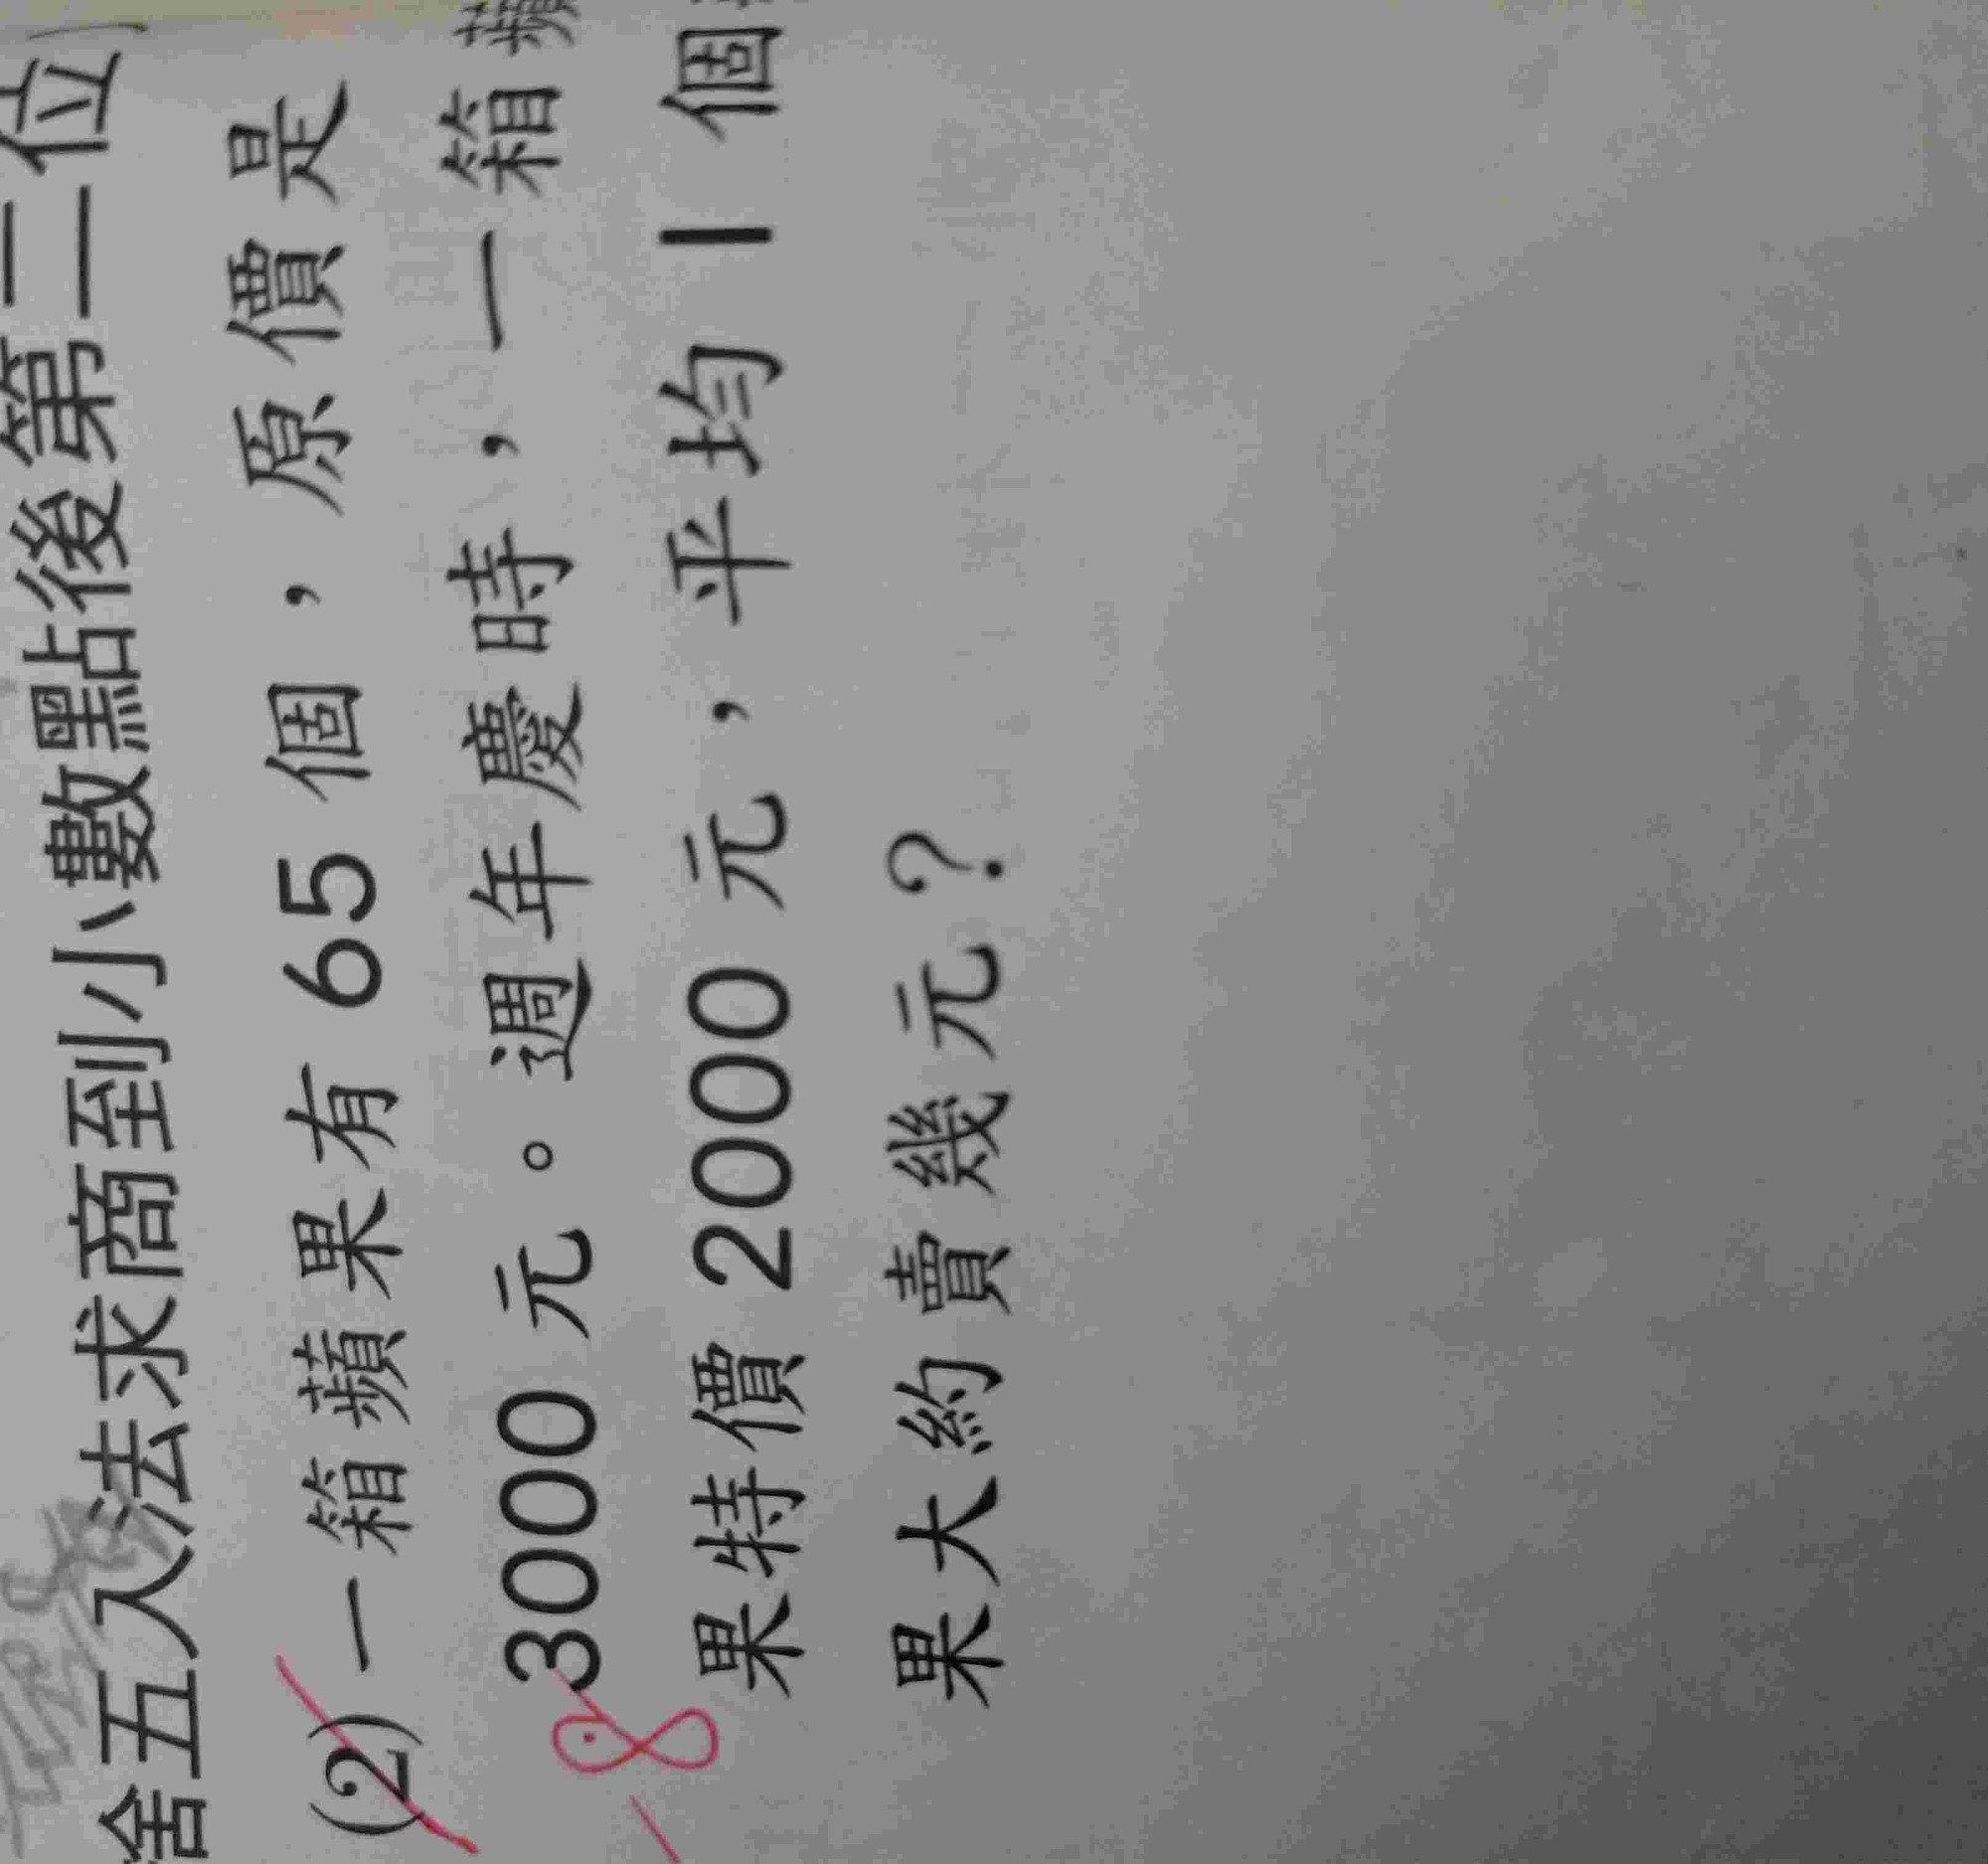 捨五入法求商到小數點後第二位)
(2)一箱蘋果有65個，原價是
3000元。週年慶時，一箱蘋
果特價2000元，平均1個
果大約賣幾元？
-8